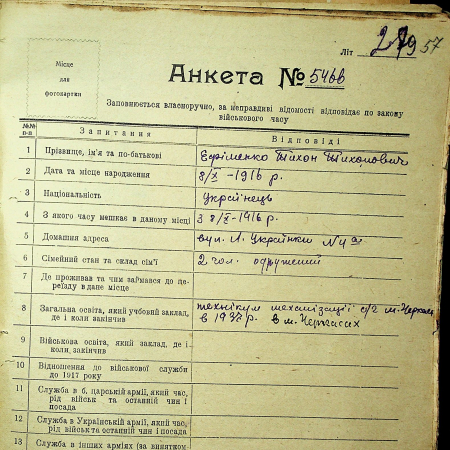 Літ
57
Місце
для
фотокартки
Анкета № 5466
Заповнюється власноручно, за неправдиві відомості відповідає по закону
військового часу
№№ п-п Запитання Відповіді
1 Прізвище, ім'я та по-батькові Єфіменко Тихон Тихонович
2 Дата та місце народження 8/X -1916 р.
3 Національність Українець
4 З якого часу мешкає в даному місці З 8/X-1916 р.
5 Домашня адреса вул. Л. Українки № 4а
6 Сімейний стан та склад сім'ї 2 чол. одружений
7 Де проживав та чим займався до пе-
реїзду в дане місце
8 Загальна освіта, який учбовий заклад,
де і коли закінчив
технікум механізації с/г м. Черкаси
в 1937 р. в м. Черкасах
9 Військова освіта, який заклад, де і
коли, закінчив
10 Відношення до військової служби
до 1917 року
11 Служба в б. царській армії, який час,
рід військ та останній чин і
посада
12 Служба в Українській армії, який час,
рід військ та останній чин і посада
13 Служба в інших арміях (за винятком